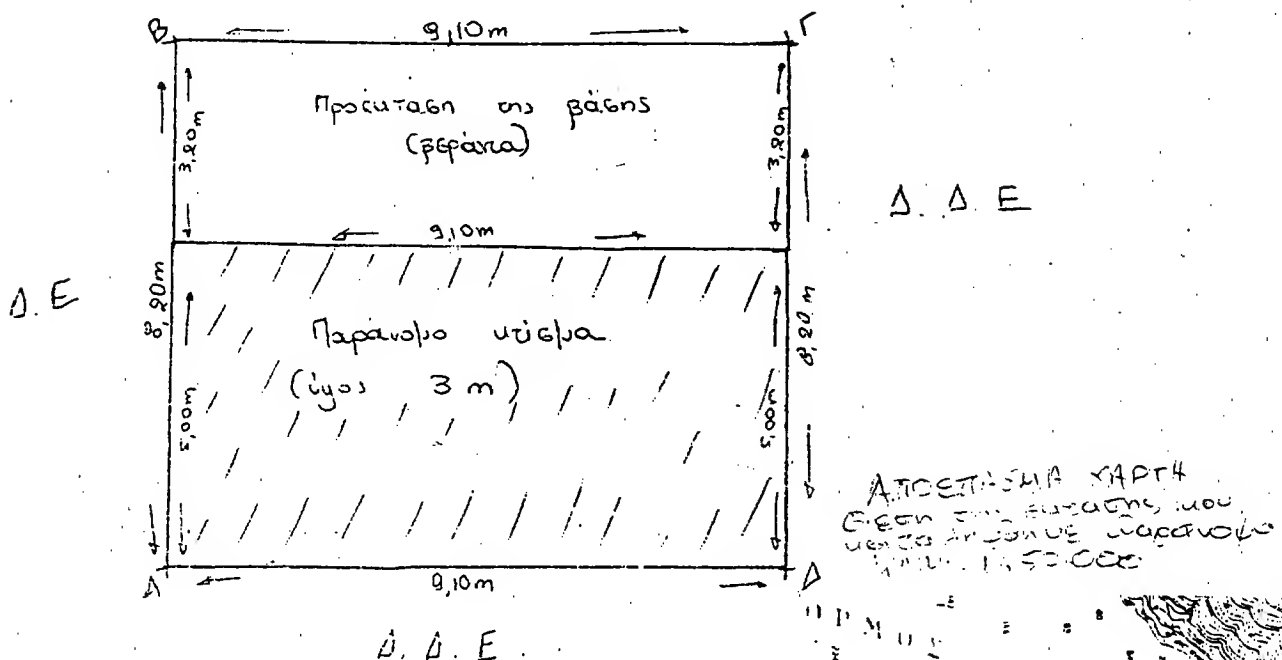 Β 9,10m Γ
3,20m
Προέκταση της βάσης
(βεράντα)
3,20m
Δ. Δ. Ε
9,10m
Δ. Ε
8,20m
Παράνομο κτίσμα
(ύψος 3 m)
8,20 m
5,00m
5,00m
ΑΠΟΣΠΑΣΜΑ ΧΑΡΤΗ
παράνομα
Α 9,10m Δ
ΟΡΜΟΣ
Δ. Δ. Ε.